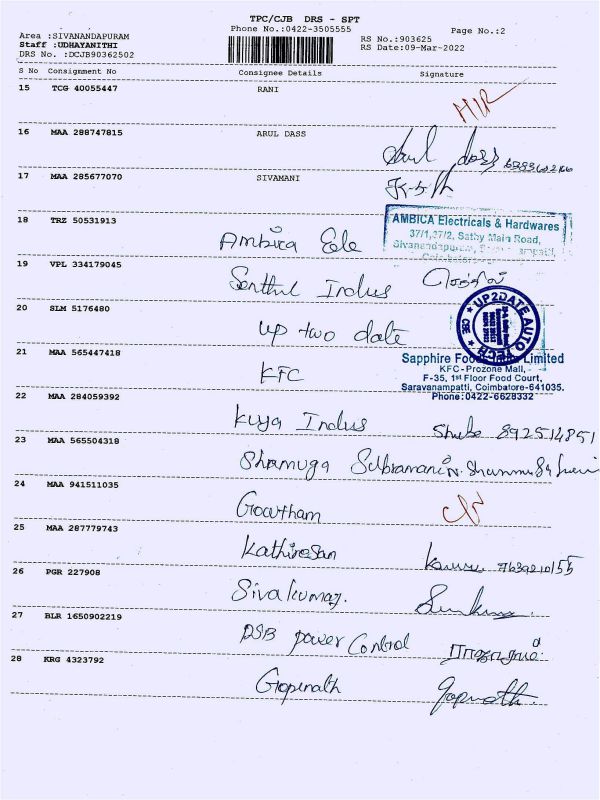 TPC/CJB DRS - SPT
Phone No.:0422-3505555
Page No.:2
Area :SIVANANDAPURAM
Staff :UDHAYANITHI
DRS No. :DCJB90362502
RS No.:903625
RS Date:09-Mar-2022
S No Consignment No Consignee Details Signature
15 TCG 40055447 RANI
16 MAA 288747815 ARUL DASS
Arul dass
17 MAA 285677070 SIVAMANI
18 TRZ 50531913
Ambica Ele
AMBICA Electricals & Hardwares
37/1,37/2, Sathy Main Road,
19 VPL 334179045
Senthil Indus செந்தில்
20 SLM 5176480
up two date
UP2DATE AUTO TECH
CBE
21 MAA 565447418
KFC
Sapphire Foods India Limited
KFC-Prozone Mall,
F-35, 1st Floor Food Court,
Saravanampatti, Coimbatore-641035.
Phone:0422-6628332
22 MAA 284059392
Kuya Indus 892514851
23 MAA 565504318
Shamuga Subramani
24 MAA 941511035
Gowtham
25 MAA 287779743
Kathiresan
26 PGR 227908
Sivakumar.
27 BLR 1650902219
PSB power Control
28 KRG 4323792
Gopinath Gopinath.